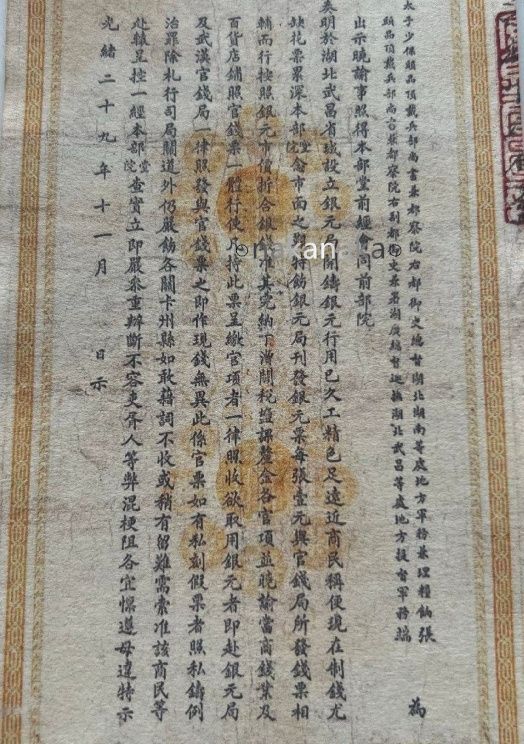 太子少保頭品頂戴兵部尚書兼都察院右都御史總督湖北湖南等處地方軍務兼理糧餉張
頭品頂戴兵部尚書兼都察院右副都御史兼署湖廣總督巡撫湖北武昌等處地方提督軍務端
為
出示曉諭事照得本部堂前經會同前部院
奏明於湖北武昌省城設立銀元局開鑄銀元行用已久工精色足遠近商民稱便現在制錢尤
缺花票累深本部堂院念市面之 特飭銀元局刊發銀元票每張壹元與官錢局所發錢票相
輔而行按照銀元市價折合銀錢准其完納丁漕關稅鹽課釐金各官項並曉諭當商錢業及
百貨店鋪照官錢票一體行使凡持此票呈繳官項者一律照收欲取用銀元者即赴銀元局
及武漢官錢局一律照發與官錢票之即作現錢無異此係官票如有私刻假票者照私鑄例
治罪除札行司局關道外仍嚴飭各關卡州縣如敢藉詞不收或稍有留難需索准該商民等
赴轅呈控一經本部堂院查實立即嚴參重辦斷不容吏胥人等弊混梗阻各宜懍遵毋違特示
光緒二十九年十一月 日示